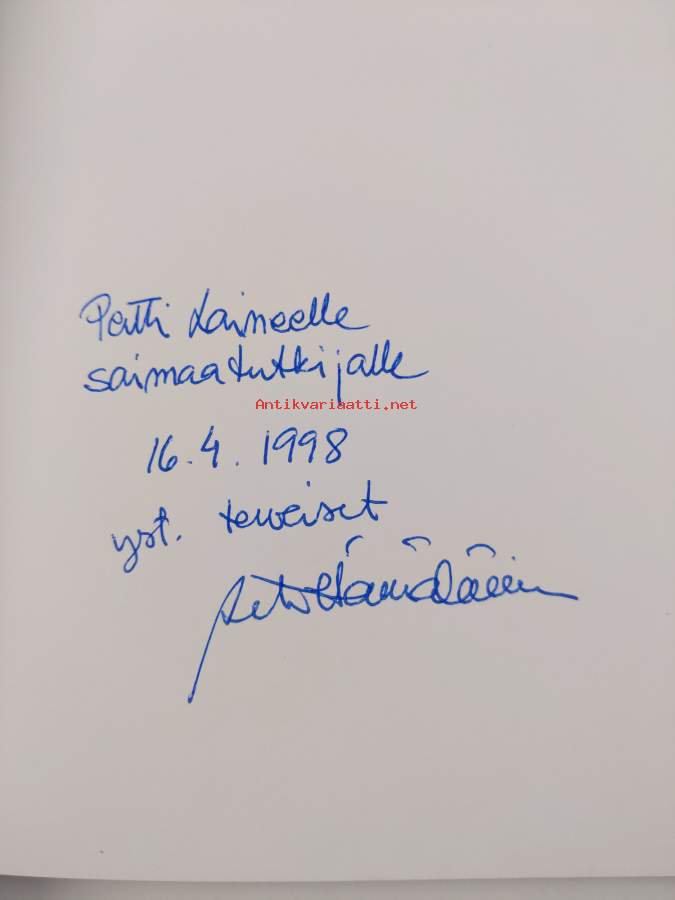 Pertti Laineelle
saimaatutkijalle
Antikvariaatti.net
16.4.1998
yst. terveiset